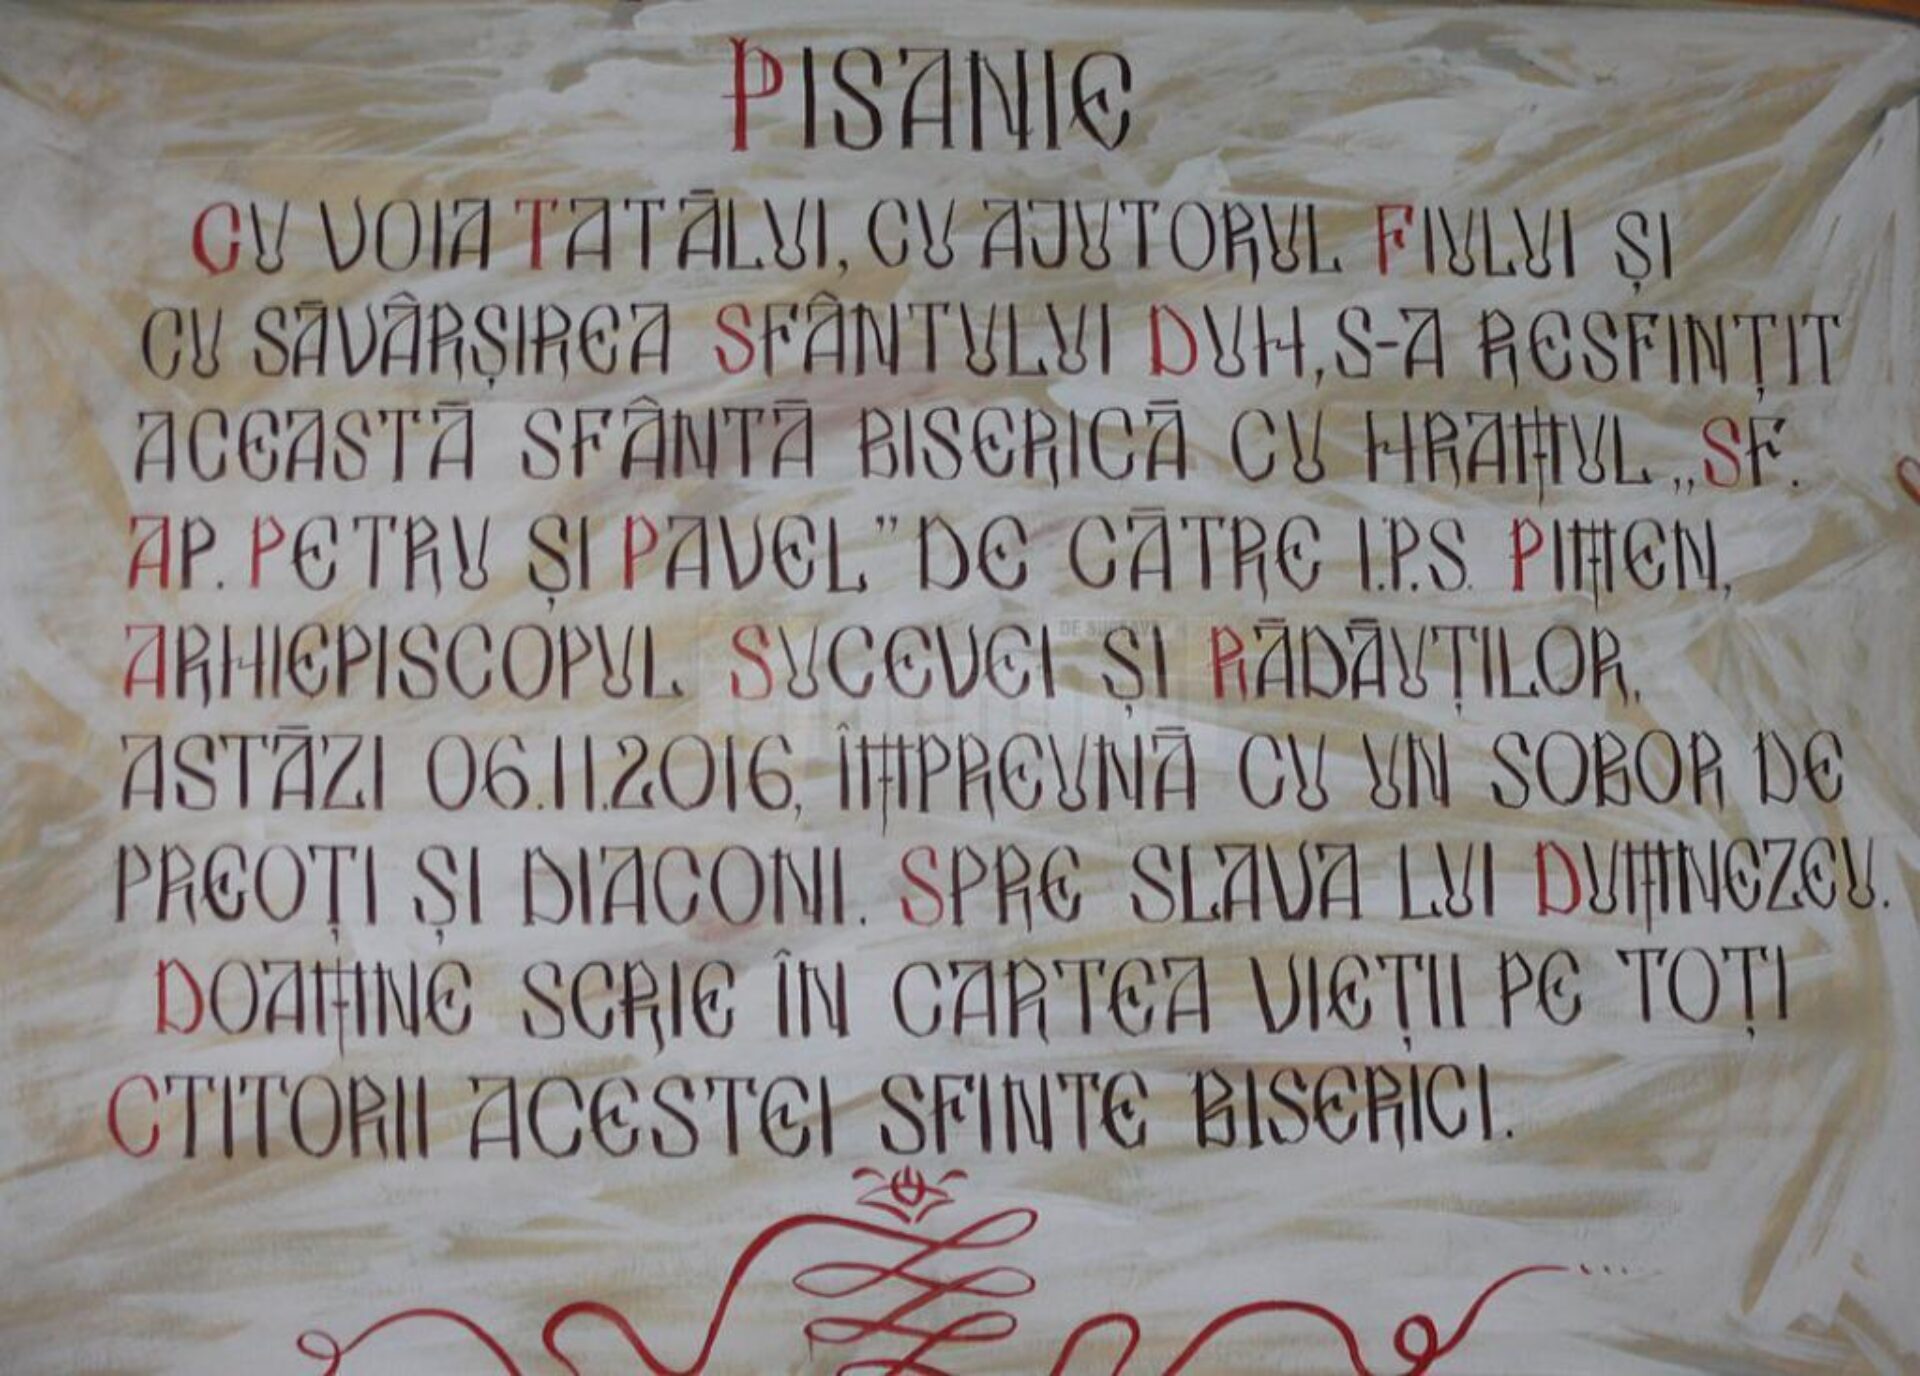 PISANIE
CU VOIA TATĂLUI, CU AJUTORUL FIULUI ȘI
CU SĂVÂRȘIREA SFÂNTULUI DUH, S-A RESFINȚIT
ACEASTĂ SFÂNTĂ BISERICĂ CU HRAMUL „SF.
AP. PETRU ȘI PAVEL” DE CĂTRE I.P.S. PIMEN,
ARHIEPISCOPUL SUCEVEI ȘI RĂDĂUȚILOR,
ASTĂZI 06.11.2016, ÎMPREUNĂ CU UN SOBOR DE
PREOȚI ȘI DIACONI. SPRE SLAVA LUI DUMNEZEU.
DOAMNE SCRIE ÎN CARTEA VIEȚII PE TOȚI
CTITORII ACESTEI SFINTE BISERICI.